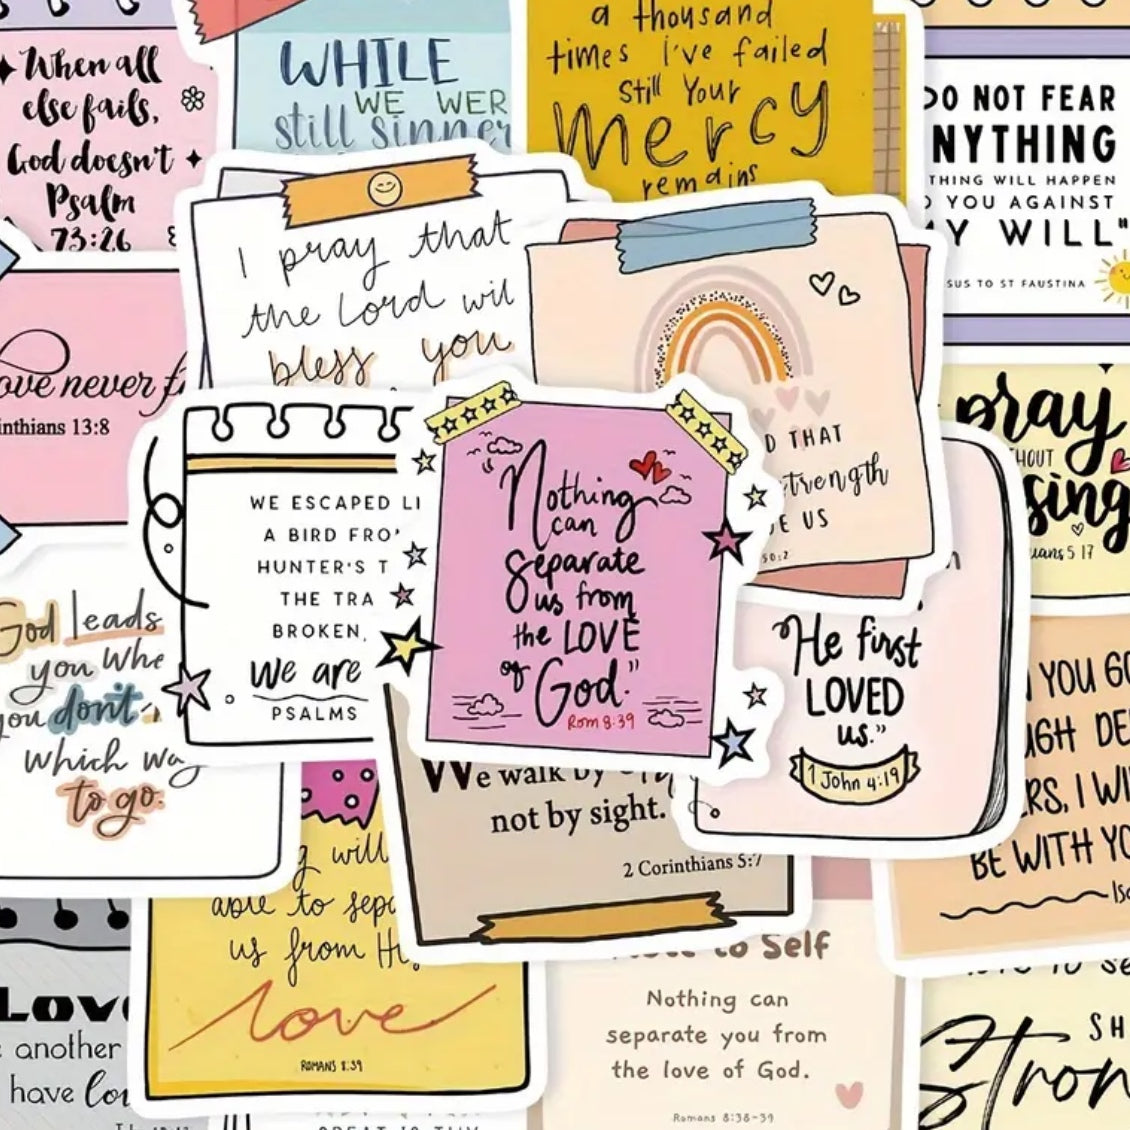 When all
else fails,
God doesn't
Psalm
73:26
WHILE
WE WER
still sinner
a thousand
times i've failed
Still Your
Mercy
remains
DO NOT FEAR
NYTHING
THING WILL HAPPEN
YOU AGAINST
Y WILL"
SUS TO ST FAUSTINA
I pray that
the Lord wil
bless you
D THAT
trength
E US
50:2
ove never f
inthians 13:8
WE ESCAPED LI
A BIRD FRO
HUNTER'S T
THE TRA
BROKEN,
We are
PSALMS
Nothing
can
separate
us from
the LOVE
of God."
Rom 8:39
pray
HOUT
sing
ians 5 17
"He first
LOVED
us."
1 John 4:19
God leads
you whe
you don't
which wa
to go.
YOU GO
UGH DE
ERS, I WI
BE WITH YO
Isa
We walk by
not by sight.
2 Corinthians 5:7
g will
able to sepa
us from Hi
love
ROMANS 8:39
to Self
Nothing can
separate you from
the love of God.
Romans 8:38-39
Love
another
have lov
SH
Stron